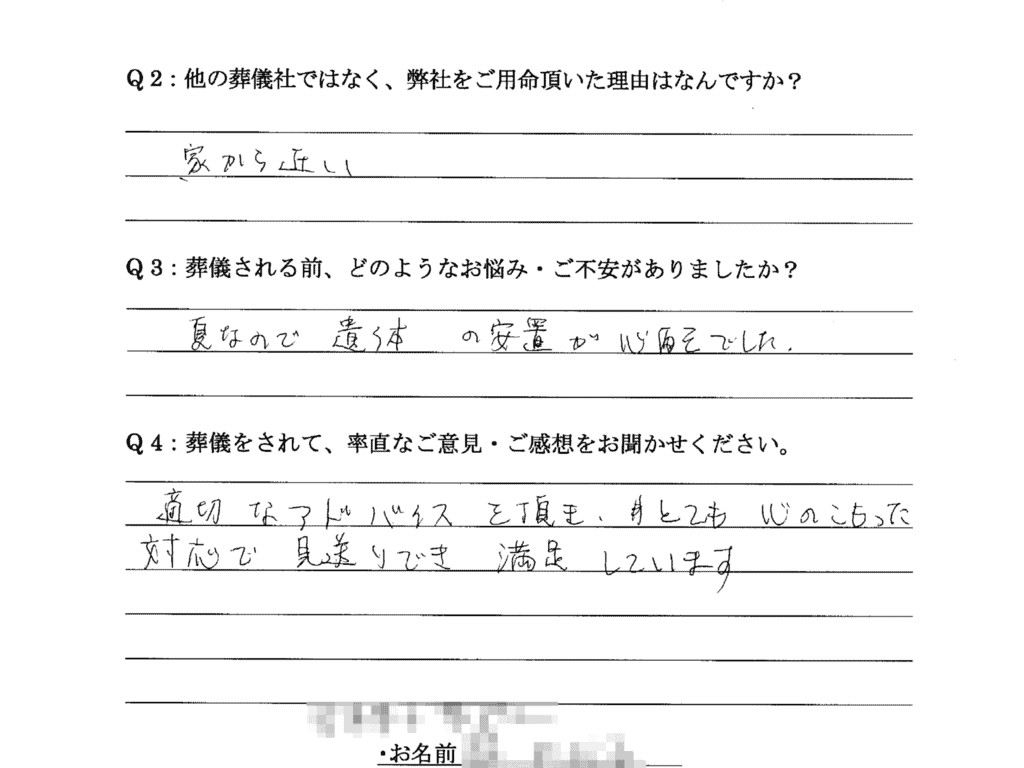 Q2：他の葬儀社ではなく、弊社をご用命頂いた理由はなんですか？
家から近い
Q3：葬儀される前、どのようなお悩み・ご不安がありましたか？
夏なので 遺体 の安置が 心配でした.
Q4：葬儀をされて、率直なご意見・ご感想をお聞かせください。
適切 なアドバイス を頂き、 とても 心のこもった
対応で 見送りでき 満足 しています
・お名前